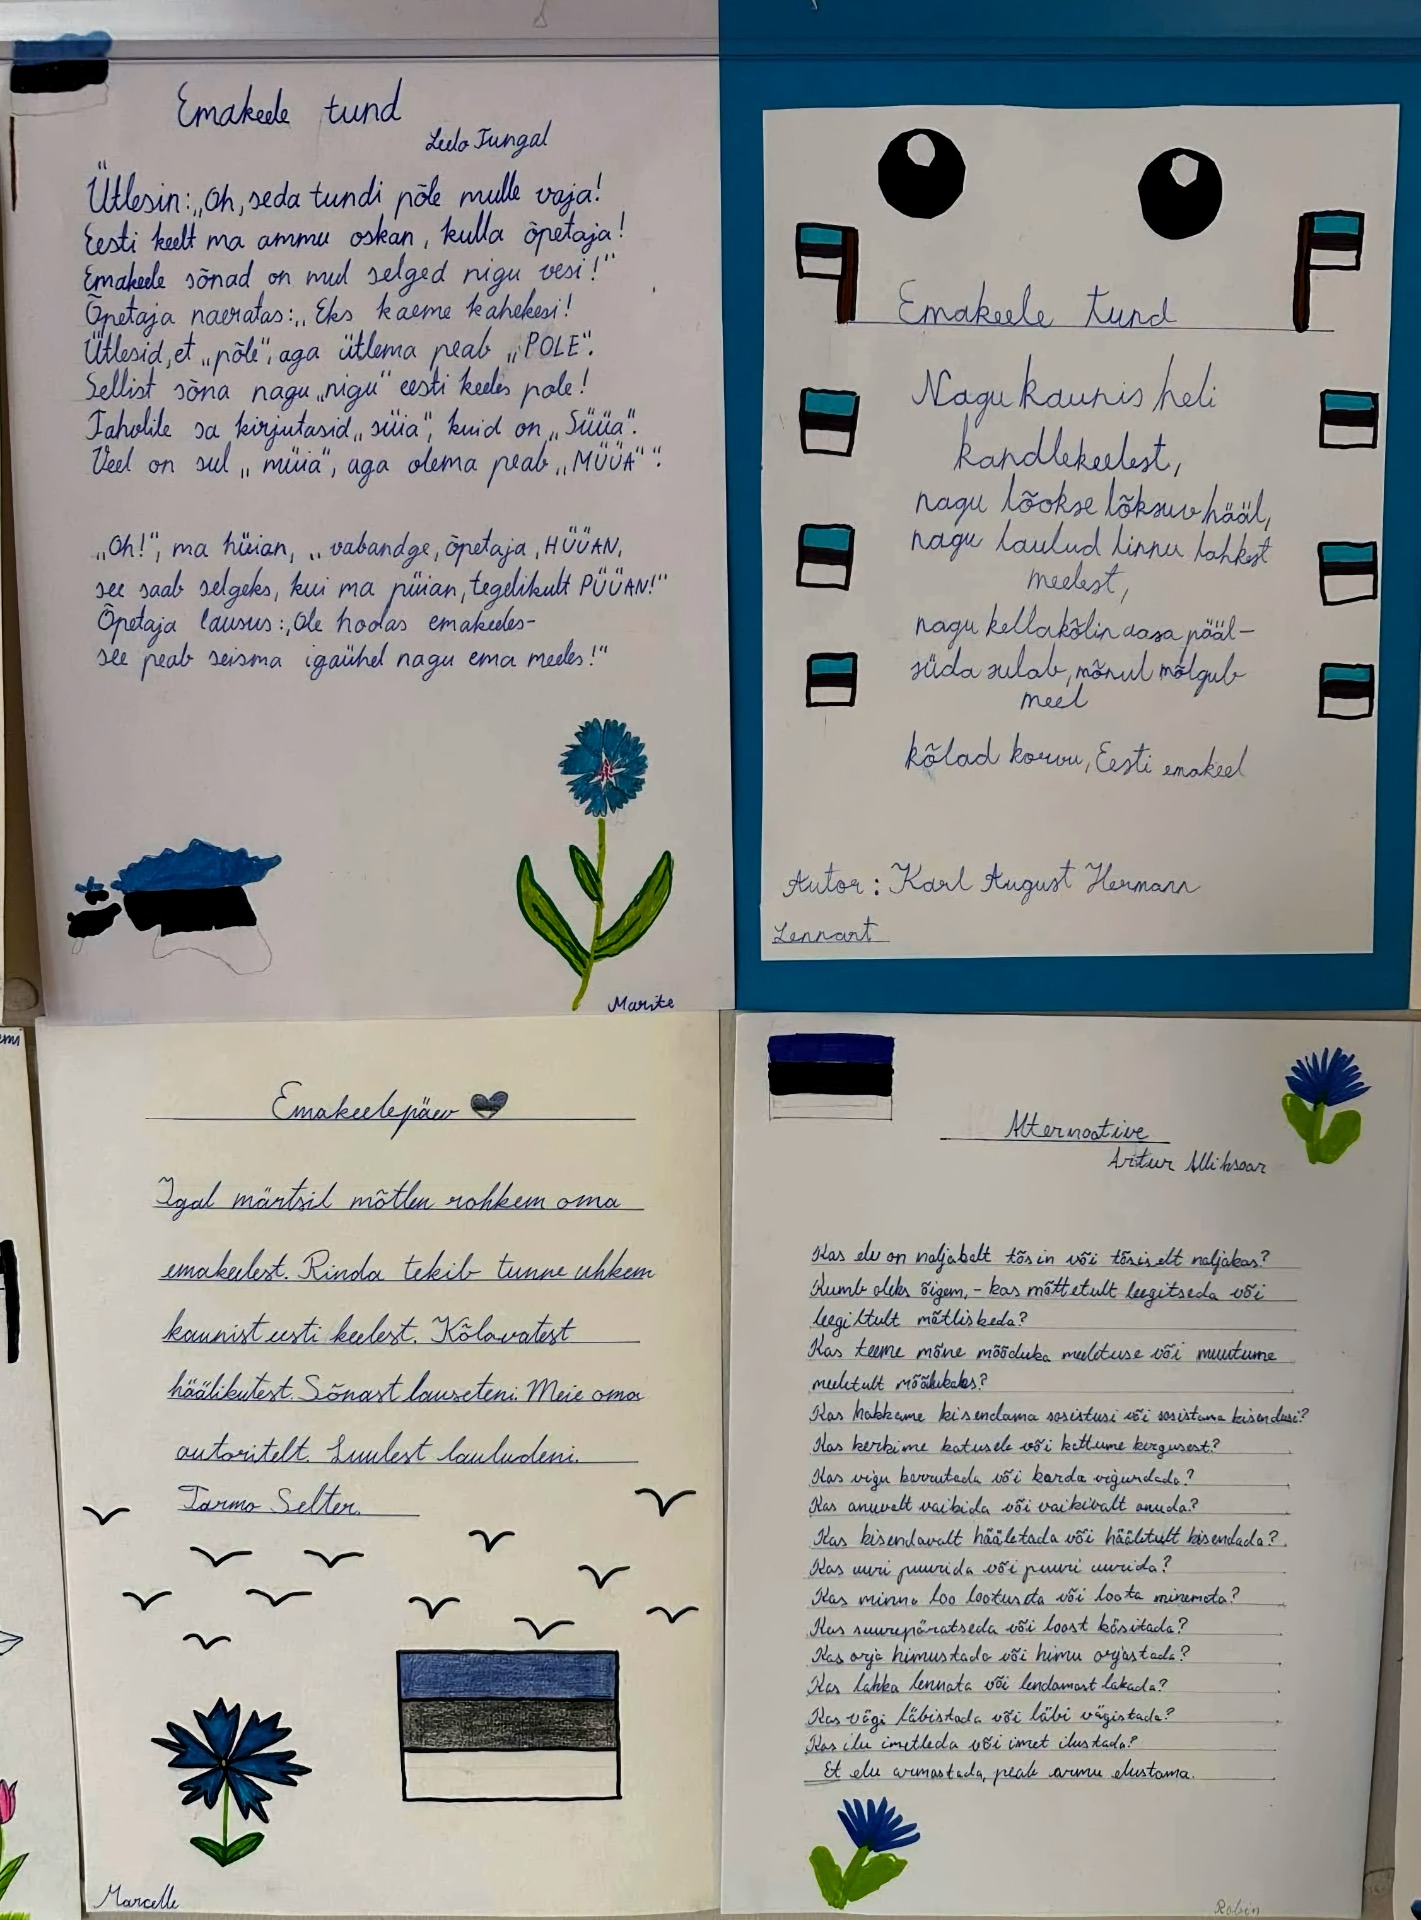 Emakeele tund
Leelo Tungal
Ütlesin: „Oh, seda tundi põle mulle vaja!
Eesti keelt ma ammu oskan, kulla õpetaja!
Emakeele sõnad on mul selged nigu vesi!"
Õpetaja naeratas: „Eks kaeme kahekesi!
Ütlesid, et „põle", aga ütlema peab „POLE".
Sellist sõna nagu „nigu" eesti keeles pole!
Tahvlile sa kirjutasid „süia", kuid on „SÜÜA".
Veel on sul „müia", aga olema peab „MÜÜA".
„Oh!", ma hüian, „vabandge, õpetaja, HÜÜAN,
see saab selgeks, kui ma püian, tegelikult PÜÜAN!"
Õpetaja lausus: „Ole hoolas emakeeles-
see peab seisma igaühel nagu ema meeles!"
Marite
Emakeele tund
Nagu kaunis heli
kandlekeelest,
nagu lõokse lõksuv hääl,
nagu laulud linnu lahkest
meelest,
nagu kellakõlin aasa pääl-
süda sulab, mõnul mõlgub
meel
kõlad korvu, Eesti emakeel
Autor: Karl August Hermann
Lennart
emi
Emakeelepäev
Igal märtsil mõtlen rohkem oma
emakeelest. Rinda tekib tunne uhkem
kaunist eesti keelest. Kõlavatest
häälikutest. Sõnast lauseteni. Meie oma
autoritelt. Luulest lauludeni.
Tarmo Selter.
Marcelle
Alternatiive
Artur Alliksaar
Kas elu on naljakalt tõsin või tõsiselt naljakas?
Kumb oleks õigem, - kas mõttetult leegitseda või
leegitult mõtliskeda?
Kas teeme mõne mõõduka meeletuse või muutume
meeletult mõõdukaks?
Kas hakkame kisendama sosistusi või sosistama kisendusi?
Kas kerkime katusele või kattume kergusest?
Kas vigu korrutada või korda vigurdada?
Kas anuvalt vaikida või vaikivalt anuda?
Kas kisendavalt hääletada või hääletult kisendada?
Kas uuri puurida või puuri uurida?
Kas minna loo lootuseta või loota minemata?
Kas suurepäratseda või loost käsitada?
Kas orja himustada või himu orjastada?
Kas lahka lennata või lendamast lakada?
Kas vägi läbistada või läbi vägistada?
Kas ilu imetleda või imet ilustada?
Et elu armastada, peab armu elustama.
Robin